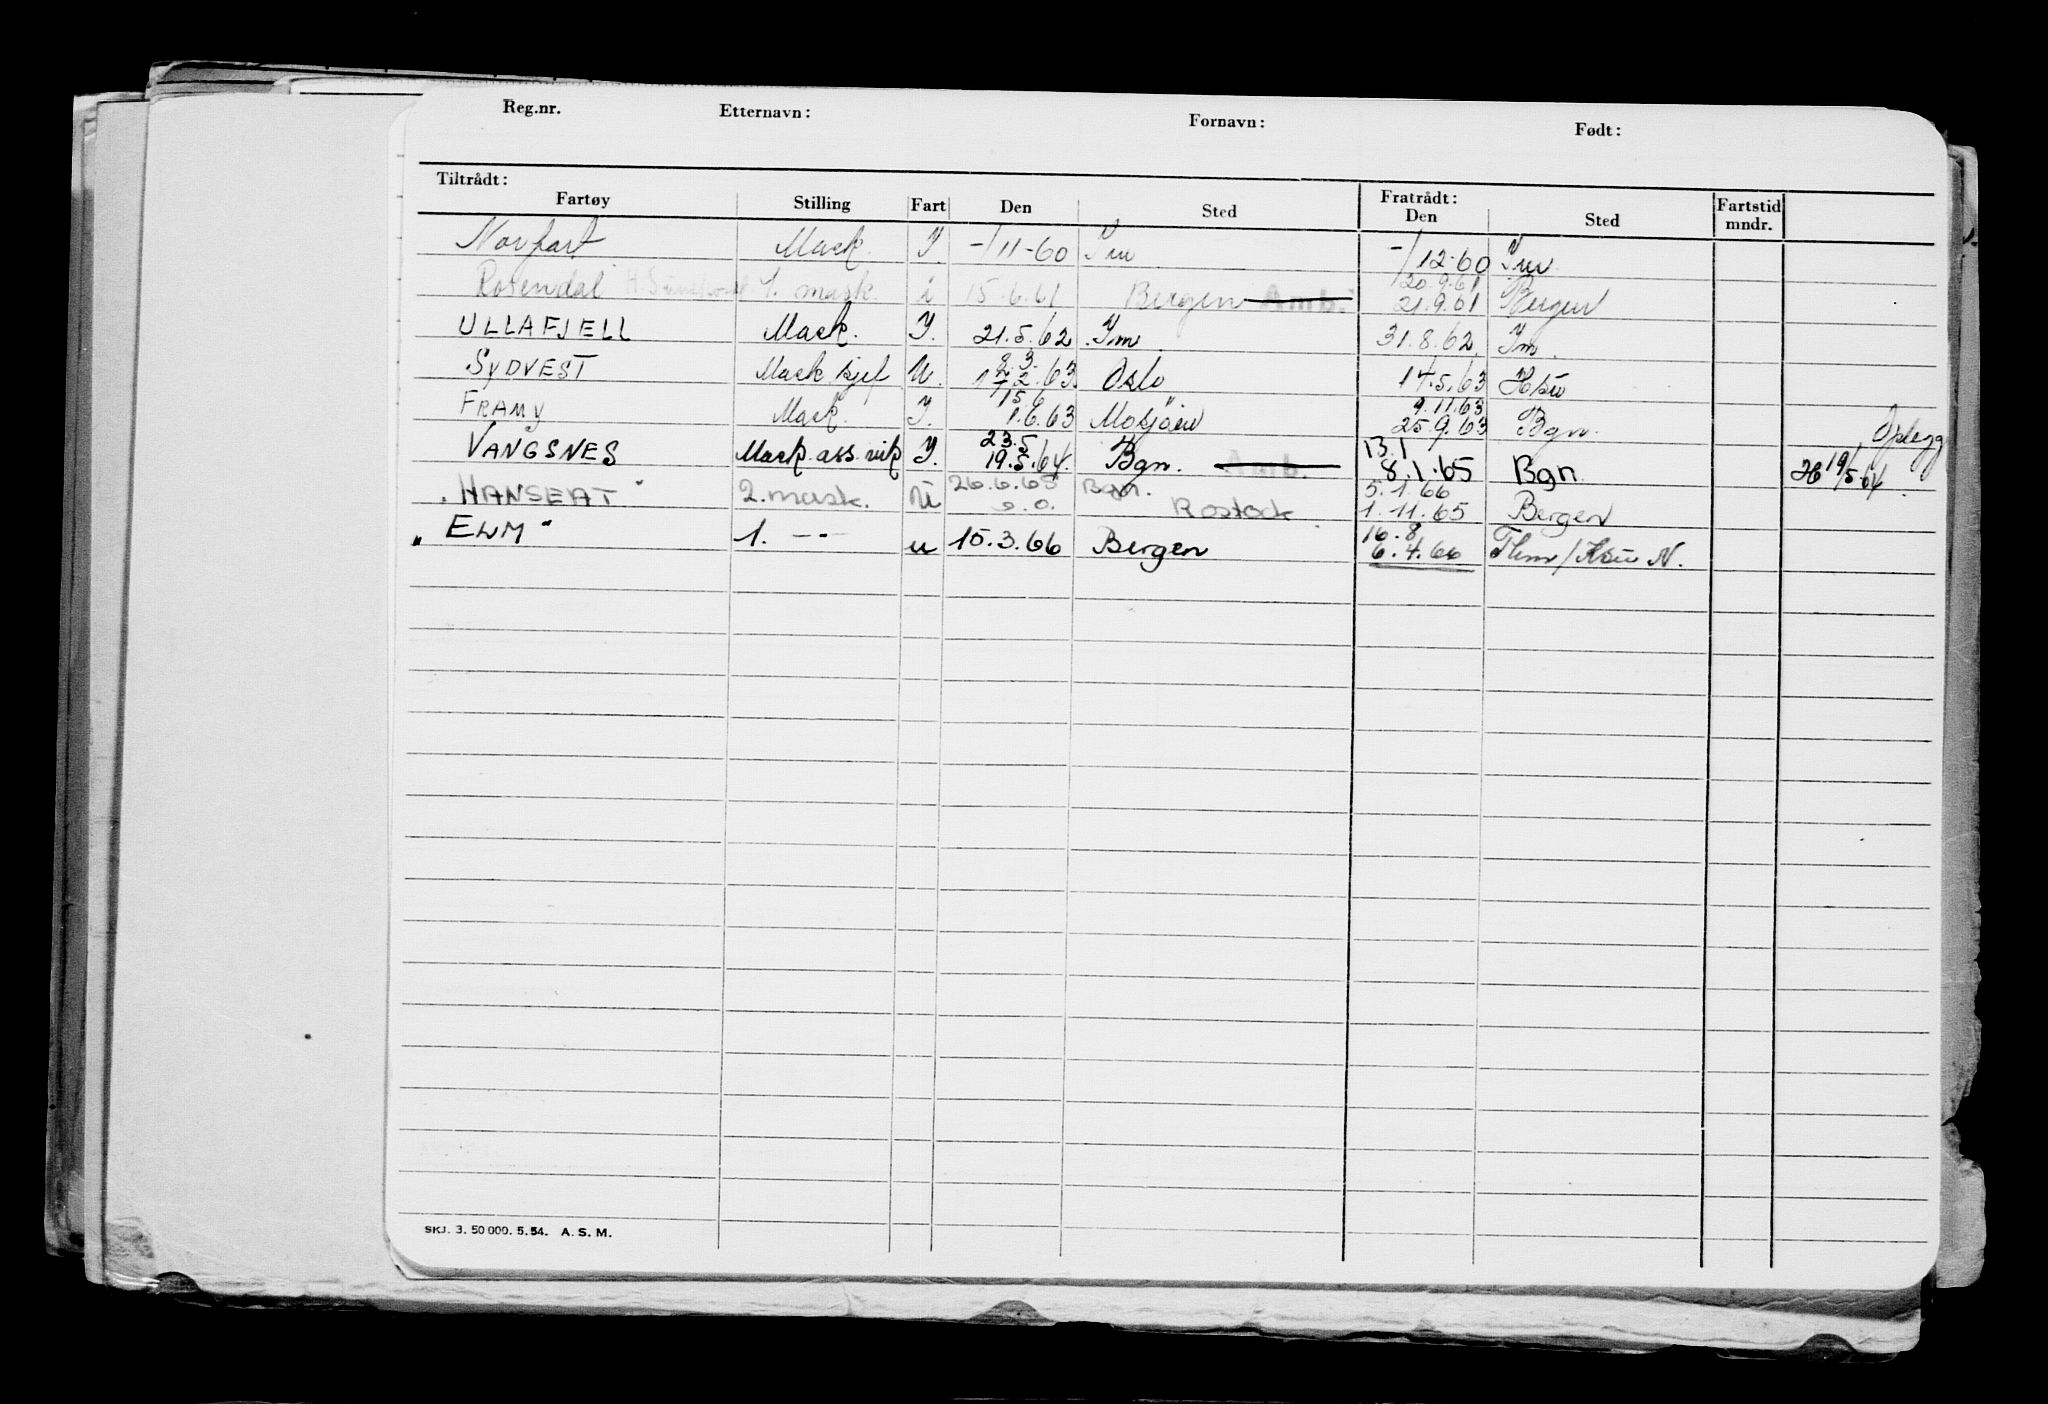 Reg.nr. Etternavn: Fornavn: Født:
Tiltrådt: Fratrådt:
Fartøy Stilling Fart Den Sted Den Sted Fartstid mndr.
Norfart Mask. I. -/11-60 Im -/12-60 Im
20.9.61
Rosendal 1. mask. i 15.6.61 Bergen Amb. 21.9.61 Bergen
ULLAFJELL Mask. I. 21.5.62 Im 31.8.62 Im.
2.3.
SYDVEST Mask kjef U. 2.63 Oslo 14.5.63 Hsu
15.6 9.11.63
FRAMY Mask. I. 1.6.63 Mosjöen 25.9.63 Bgn. Oplegg
23.5 13.1
VANGSNES Mask. ass. vik I. 19.5.64. Bgn. Amb. 8.1.65 Bgn. 19/5-64.
26.6.65 Bgn. 5.1.66
"HANSEAT" 2. mask. U o.o. Rostock. 1.11.65 Bergen
16.8
"ELM" 1. -"- u 15.3.66 Bergen 6.4.66 Thm/Hsu N.
SKJ. 3. 50 000. 5.54. A. S. M.